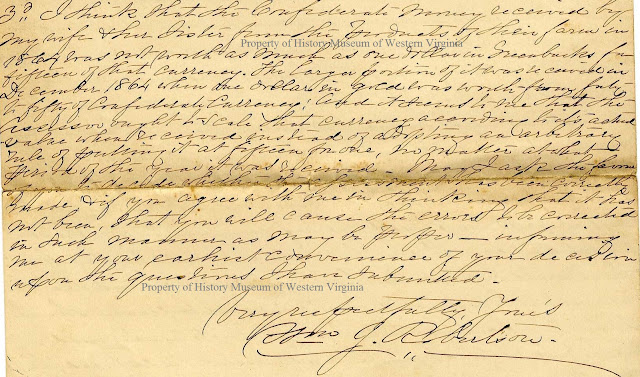 3rd I think that the Confederate money received by
my wife & her Sister from the products of their farm in
Property of History Museum of Western Virginia
1864 was not worth as much as one dollar in Greenbacks for
fifteen of that currency. The larger portion of it was received in
December 1864 when one dollar in gold was worth from forty
to fifty of Confederate Currency; And it seems to me that the
assessor ought to scale that currency according to its actual
value when received instead of adopting an arbitrary
rule of putting it at fifteen for one no matter at what
period of the year it was received — May I ask the favor
made & if you agree with me in thinking that it has
not been, that you will cause the errors to be corrected
in such manner as may be proper — informing
me at your earliest convenience of your decision
upon the questions I have submitted.
Property of History Museum of Western Virginia
Very respectfully, Yours
Wm J. Robertson.